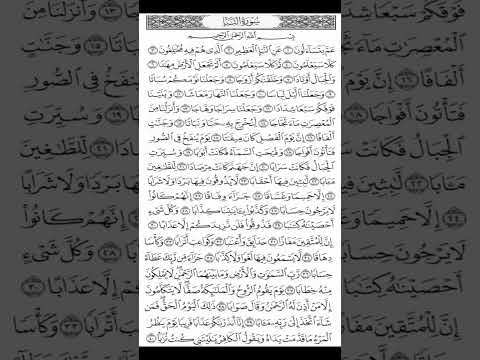 سُورَةُ النَّبَإِ
بِسْمِ اللَّهِ الرَّحْمَٰنِ الرَّحِيمِ
عَمَّ يَتَسَاءَلُونَ ١ عَنِ النَّبَإِ الْعَظِيمِ ٢ الَّذِي هُمْ فِيهِ مُخْتَلِفُونَ ٣
كَلَّا سَيَعْلَمُونَ ٤ ثُمَّ كَلَّا سَيَعْلَمُونَ ٥ أَلَمْ نَجْعَلِ الْأَرْضَ مِهَٰدًا ٦
وَالْجِبَالَ أَوْتَادًا ٧ وَخَلَقْنَٰكُمْ أَزْوَٰجًا ٨ وَجَعَلْنَا نَوْمَكُمْ سُبَاتًا ٩
وَجَعَلْنَا الَّيْلَ لِبَاسًا ١٠ وَجَعَلْنَا النَّهَارَ مَعَاشًا ١١ وَبَنَيْنَا
فَوْقَكُمْ سَبْعًا شِدَادًا ١٢ وَجَعَلْنَا سِرَاجًا وَهَّاجًا ١٣ وَأَنزَلْنَا مِنَ
الْمُعْصِرَٰتِ مَاءً ثَجَّاجًا ١٤ لِنُخْرِجَ بِهِ حَبًّا وَنَبَاتًا ١٥ وَجَنَّٰتٍ
أَلْفَافًا ١٦ إِنَّ يَوْمَ الْفَصْلِ كَانَ مِيقَٰتًا ١٧ يَوْمَ يُنفَخُ فِي الصُّورِ
فَتَأْتُونَ أَفْوَاجًا ١٨ وَفُتِحَتِ السَّمَاءُ فَكَانَتْ أَبْوَٰبًا ١٩ وَسُيِّرَتِ
الْجِبَالُ فَكَانَتْ سَرَابًا ٢٠ إِنَّ جَهَنَّمَ كَانَتْ مِرْصَادًا ٢١ لِلطَّٰغِينَ
مَـَٔابًا ٢٢ لَّٰبِثِينَ فِيهَا أَحْقَابًا ٢٣ لَّا يَذُوقُونَ فِيهَا بَرْدًا وَلَا شَرَابًا ٢٤
إِلَّا حَمِيمًا وَغَسَّاقًا ٢٥ جَزَاءً وِفَاقًا ٢٦ إِنَّهُمْ كَانُوا
لَا يَرْجُونَ حِسَابًا ٢٧ وَكَذَّبُوا بِـَٔايَٰتِنَا كِذَّابًا ٢٨ وَكُلَّ شَيْءٍ
أَحْصَيْنَٰهُ كِتَٰبًا ٢٩ فَذُوقُوا فَلَن نَّزِيدَكُمْ إِلَّا عَذَابًا ٣٠
إِنَّ لِلْمُتَّقِينَ مَفَازًا ٣١ حَدَائِقَ وَأَعْنَٰبًا ٣٢ وَكَوَاعِبَ أَتْرَابًا ٣٣ وَكَأْسًا
دِهَاقًا ٣٤ لَّا يَسْمَعُونَ فِيهَا لَغْوًا وَلَا كِذَّٰبًا ٣٥ جَزَاءً مِّن رَّبِّكَ عَطَاءً
حِسَابًا ٣٦ رَّبِّ السَّمَٰوَٰتِ وَالْأَرْضِ وَمَا بَيْنَهُمَا الرَّحْمَٰنِ لَا يَمْلِكُونَ
مِنْهُ خِطَابًا ٣٧ يَوْمَ يَقُومُ الرُّوحُ وَالْمَلَٰئِكَةُ صَفًّا لَّا يَتَكَلَّمُونَ
إِلَّا مَنْ أَذِنَ لَهُ الرَّحْمَٰنُ وَقَالَ صَوَابًا ٣٨ ذَٰلِكَ الْيَوْمُ الْحَقُّ فَمَن
شَاءَ اتَّخَذَ إِلَىٰ رَبِّهِ مَـَٔابًا ٣٩ إِنَّا أَنذَرْنَٰكُمْ عَذَابًا قَرِيبًا يَوْمَ يَنظُرُ
الْمَرْءُ مَا قَدَّمَتْ يَدَاهُ وَيَقُولُ الْكَافِرُ يَٰلَيْتَنِي كُنتُ تُرَٰبًا ٤٠